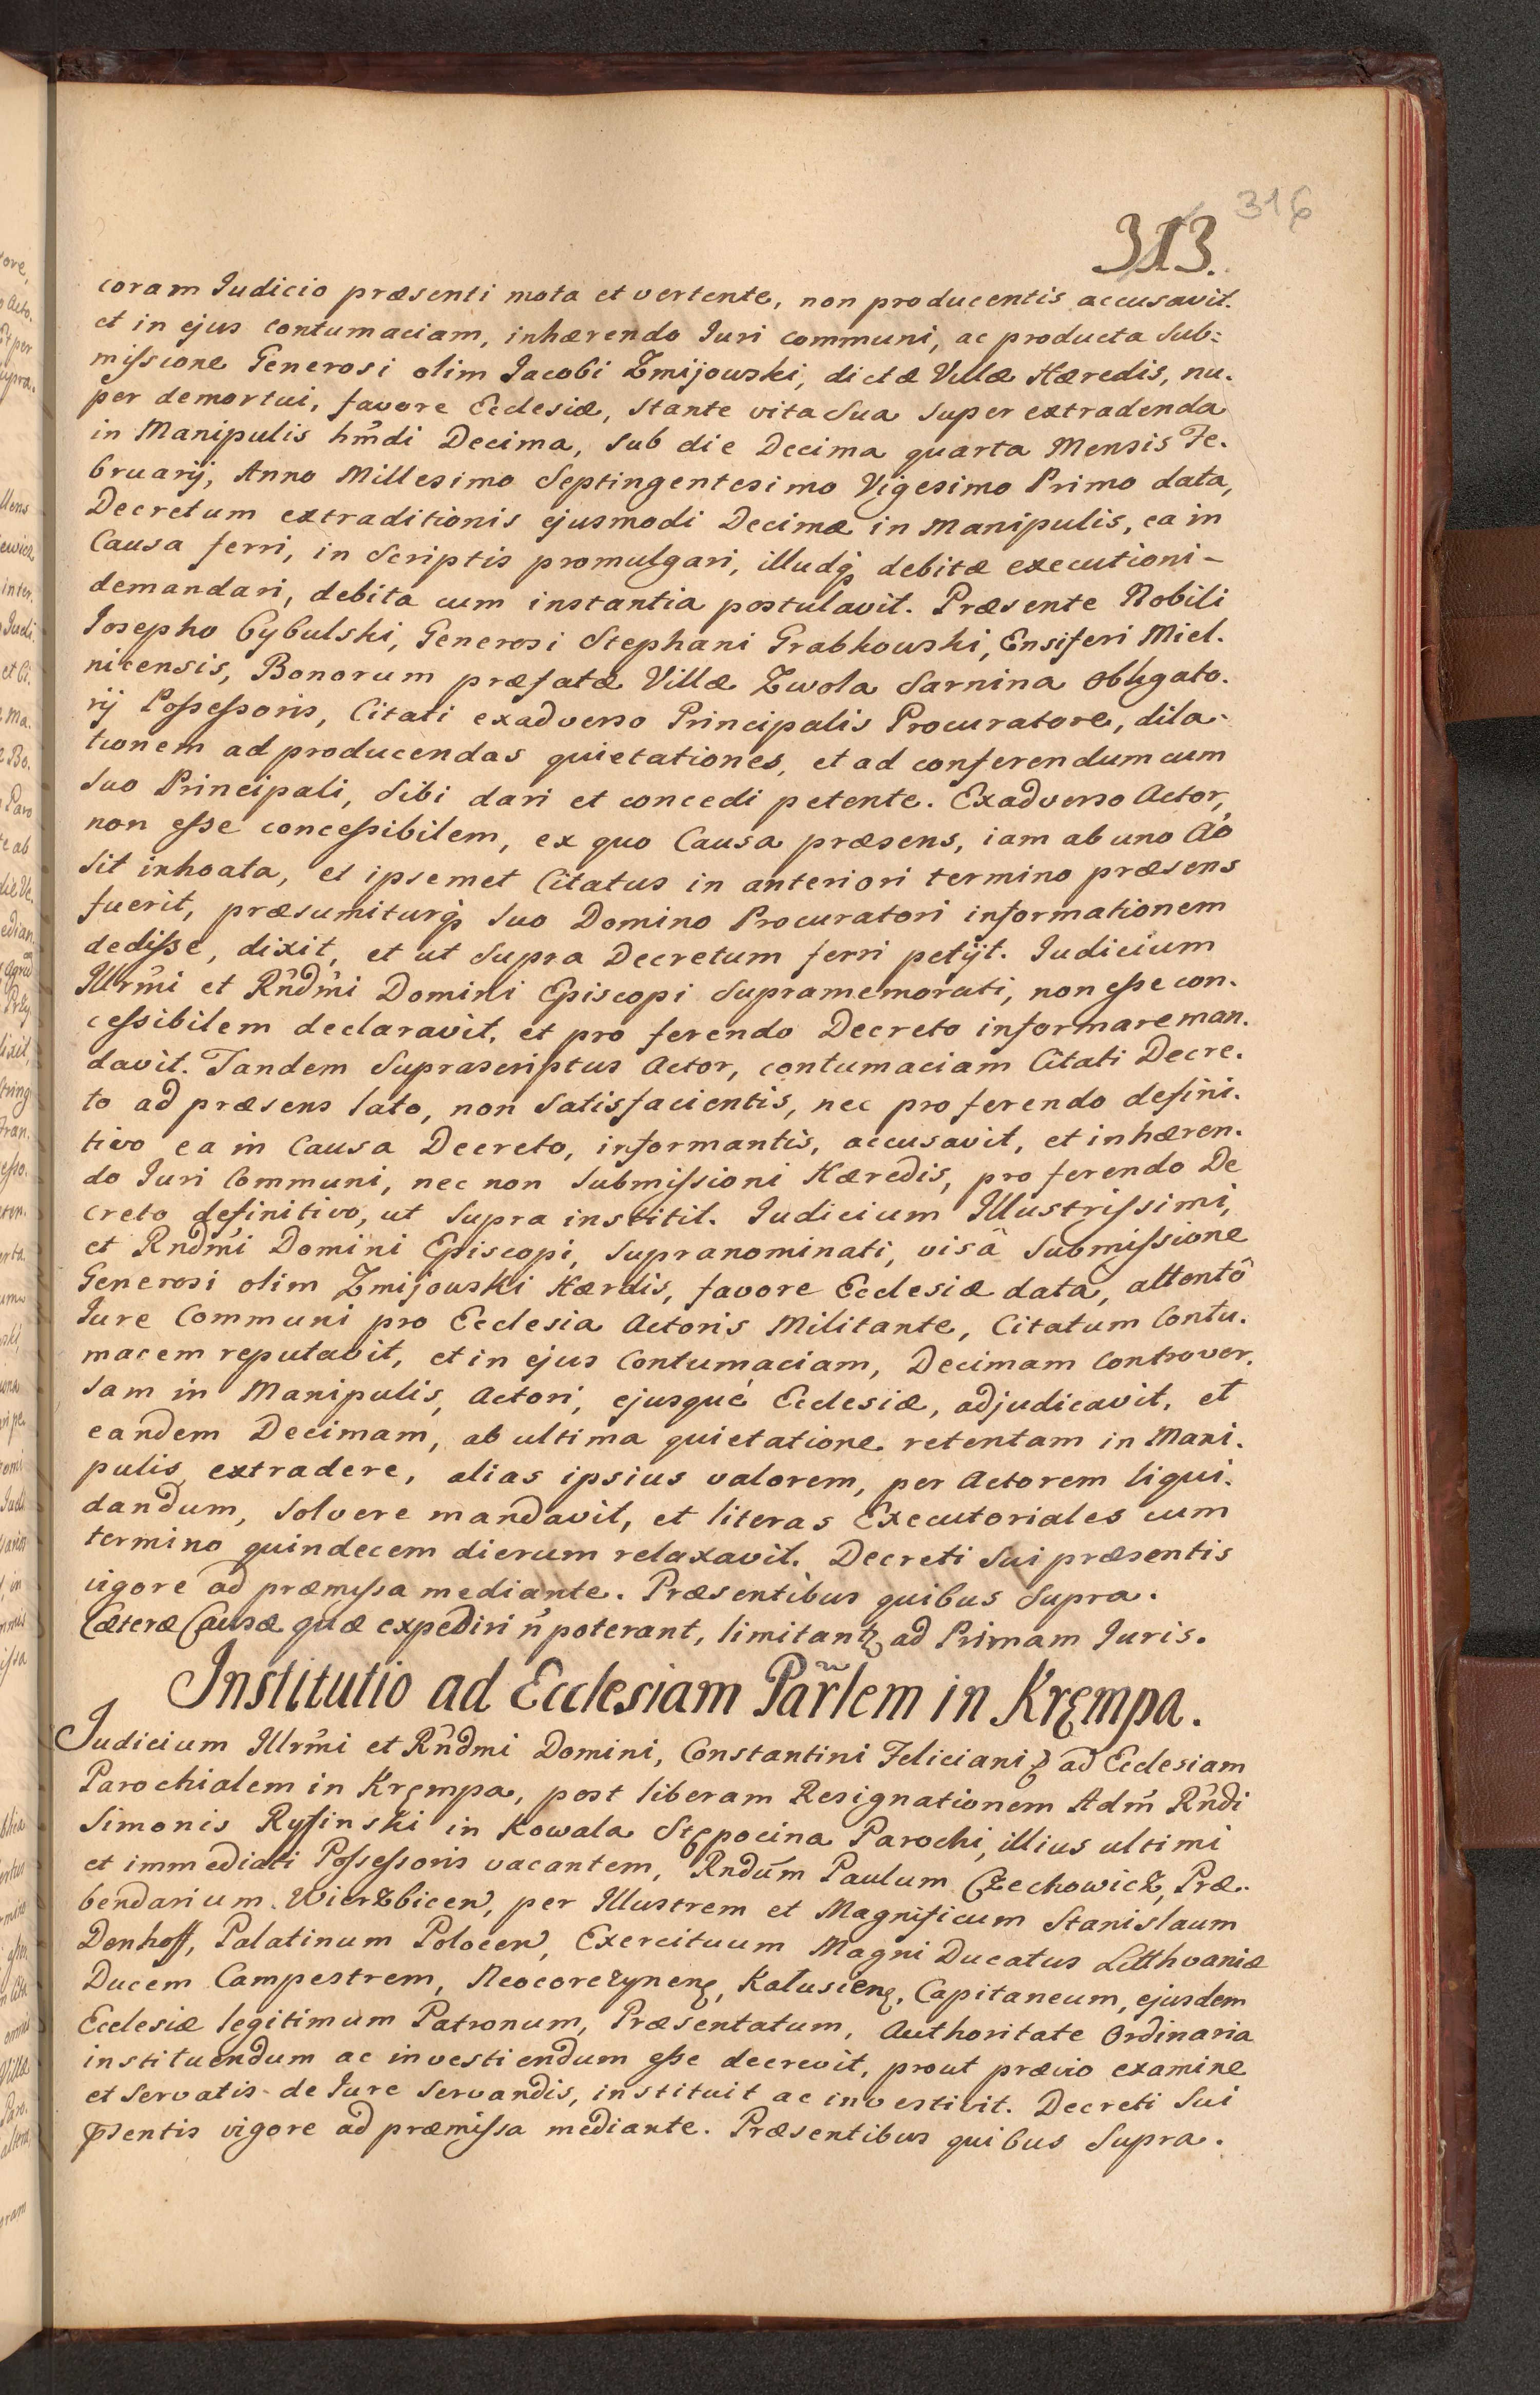 316
313.
coram Iudicio præsenti mota et vertente, non producentis accusavit.
et in ejus contumaciam, inhærendo Iuri communi, ac producta Sub:
missione Generosi olim Iacobi Zmijowski, dictæ Villæ Hæredis, nu.
per demortui, favore Ecclesiæ, Stante vita Sua super extradenda
in Manipulis hm̃di Decima, Sub die Decima quarta Mensis Fe.
bruarij, Anno Millesimo Septingentesimo Vigesimo Primo data,
Decretum extraditionis ejusmodi Decimæ in Manipulis, ea in
Causa ferri, in Scriptis promulgari, illudq̃ debitæ executioni-
demandari, debita cum instantia postulavit. Præsente Nobili
Iosepho Cybulski, Generosi Stephani Grabkowski, Ensiferi Miel.
nicensis, Bonorum præfatæ Villæ Zwola Sarnina obligato.
rij Possessoris, Citati exadverso Principalis Procuratore, dila.
tionem ad producendas quietationes, et ad conferendum cum
Suo Principali, Sibi dari et concedi petente. Exadverso Actor,
non esse concessibilem, ex quo Causa præsens, iam ab uno Ao
Sit inhoata, et ipsemet Citatus in anteriori termino præsens
fuerit, præsumiturq̃ Suo Domino Procuratori informationem
dedisse, dixit, et ut Supra Decretum ferri petijt. Iudicium
Illrm̃i et Rñdm̃i Domini Episcopi Supramemorati, non esse con.
cessibilem declaravit, et pro ferendo Decreto informare man.
davit. Tandem Suprascriptus Actor, contumaciam Citati Decre.
to ad præsens lato, non Satisfacientis, nec pro ferendo defini.
tivo ea in Causa Decreto, informantis, accusavit, et inhæren.
do Iuri Communi, nec non Submissioni Hæredis, pro ferendo De
creto definitivo, ut Supra institit. Iudicium Illustrissimi,
et Rndm̃i Domini Episcopi, Supranominati, visâ Submissione
Generosi olim Zmijowski Hærdis, favore Ecclesiæ data, attentô
Iure Communi pro Ecclesia Actoris Militante, Citatum Contu.
macem reputavit, et in ejus Contumaciam, Decimam Controver.
sam in Manipulis, Actori, ejusque Ecclesiæ, adjudicavit, et
eandem Decimam, ab ultima quietatione retentam in Mani.
pulis extradere, alias ipsius valorem, per Actorem liqui.
dandum, Solvere mandavit, et literas Executoriales cum
termino quindecem dierum relaxavit. Decreti Sui præsentis
vigore ad præmissa mediante. Præsentibus quibus Supra.
Cæteræ Causæ quæ expediri ñ poterant, limitantꝛ ad Primam Iuris.
Institutio ad Ecclesiam Par̃lem in Krzempa.
Judicium Illrm̃i et Rñdmi Domini, Constantini Feliciani ꝛ ad Ecclesiam
Parochialem in Krzempa, post liberam Resignationem Adm̃ Rñdi
Simonis Rysinski in Kowala Stępocina Parochi, illius ultimi
et immediati Possessoris vacantem, Rndũm Paulum Czechowicz, Præ.
bendarium Wierzbicen, per Illustrem et Magnificum Stanislaum
Denhoff, Palatinum Polocen, Exercituum Magni Ducatus Litthvaniæ
Ducem Campestrem, Neocorczynenꝫ, Kałusienꝫ, Capitaneum, ejusdem
Ecclesiæ legitimum Patronum, Præsentatum, Authoritate Ordinaria
instituendum ac investiendum esse decrevit, prout prævio examine
et Servatis de Iure Servandis, instituit ac investivit. Decreti Sui
p̃sentis vigore ad præmissa mediante. Præsentibus quibus Supra.